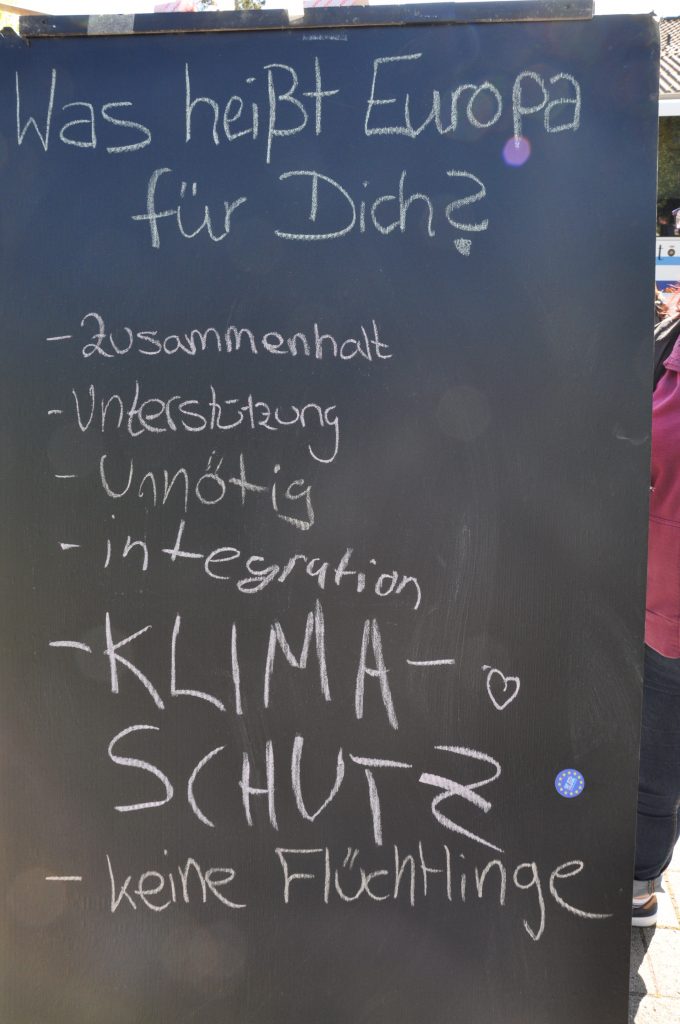 Was heißt Europa
für Dich?
- Zusammenhalt
- Unterstützung
- Unnötig
- integration
- KLIMA-
SCHUTZ
- keine Flüchtlinge